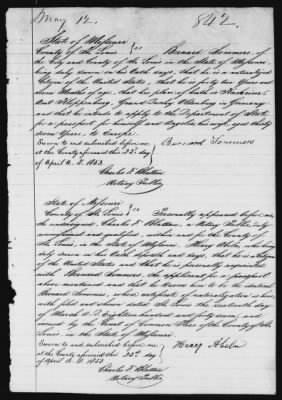 May 12. 842.
State of Missouri
County of St. Louis } ss Bernard Sommers of
the City and County of St. Louis in the State of Missouri,
being duly sworn on his Oath says, that he is a naturalized
Citizen of the United States, that he is forty two Years and
seven Months of age, that his place of birth is
Amt Grand Duchy Oldenburg in Germany
and that he intends to apply to the Department of State
for a passport for himself and his wife, aged thirty
seven Years, to Europe.
Sworn to and subscribed before me
at the County aforesaid this 23d day Bernard Sommers
of April A. D. 1853.
Charles F.
Notary Public
State of Missouri
County of St. Louis } ss Personally appeared before me,
the undersigned, Charles F. a Notary Public, duly
commissioned and qualified, within and for the County of
St. Louis, in the State of Missouri Henry who being
duly sworn on his Oath doeth and says, that he is a Citizen
of the United States and that he is personally acquainted
with Bernard Sommers, the applicant for a passport
above mentioned and that he knows him to be the identical
Bernard Sommers, whose certificate of naturalization is here
with filed and shown dated the sixteenth day
of March A. D. Eighteen hundred and forty seven, and
issued by the Court of Common Pleas of the County of St.
Louis, in the State of Missouri
Sworn to and subscribed before me
at the County aforesaid this 23d day Henry
of April A. D. 1853
Charles F.
Notary Public